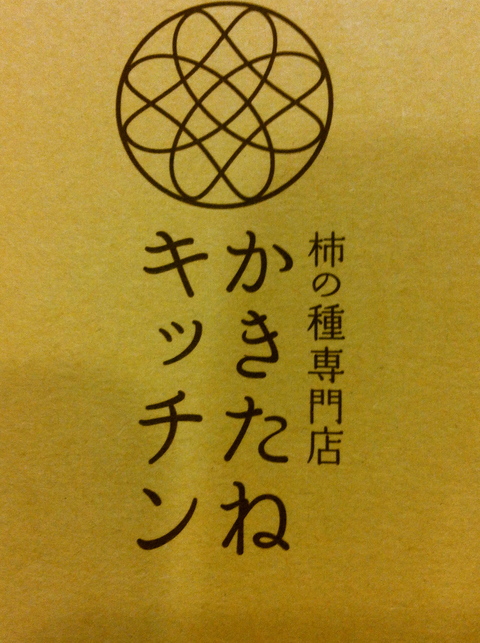 柿の種専門店
かきたね
キッチン